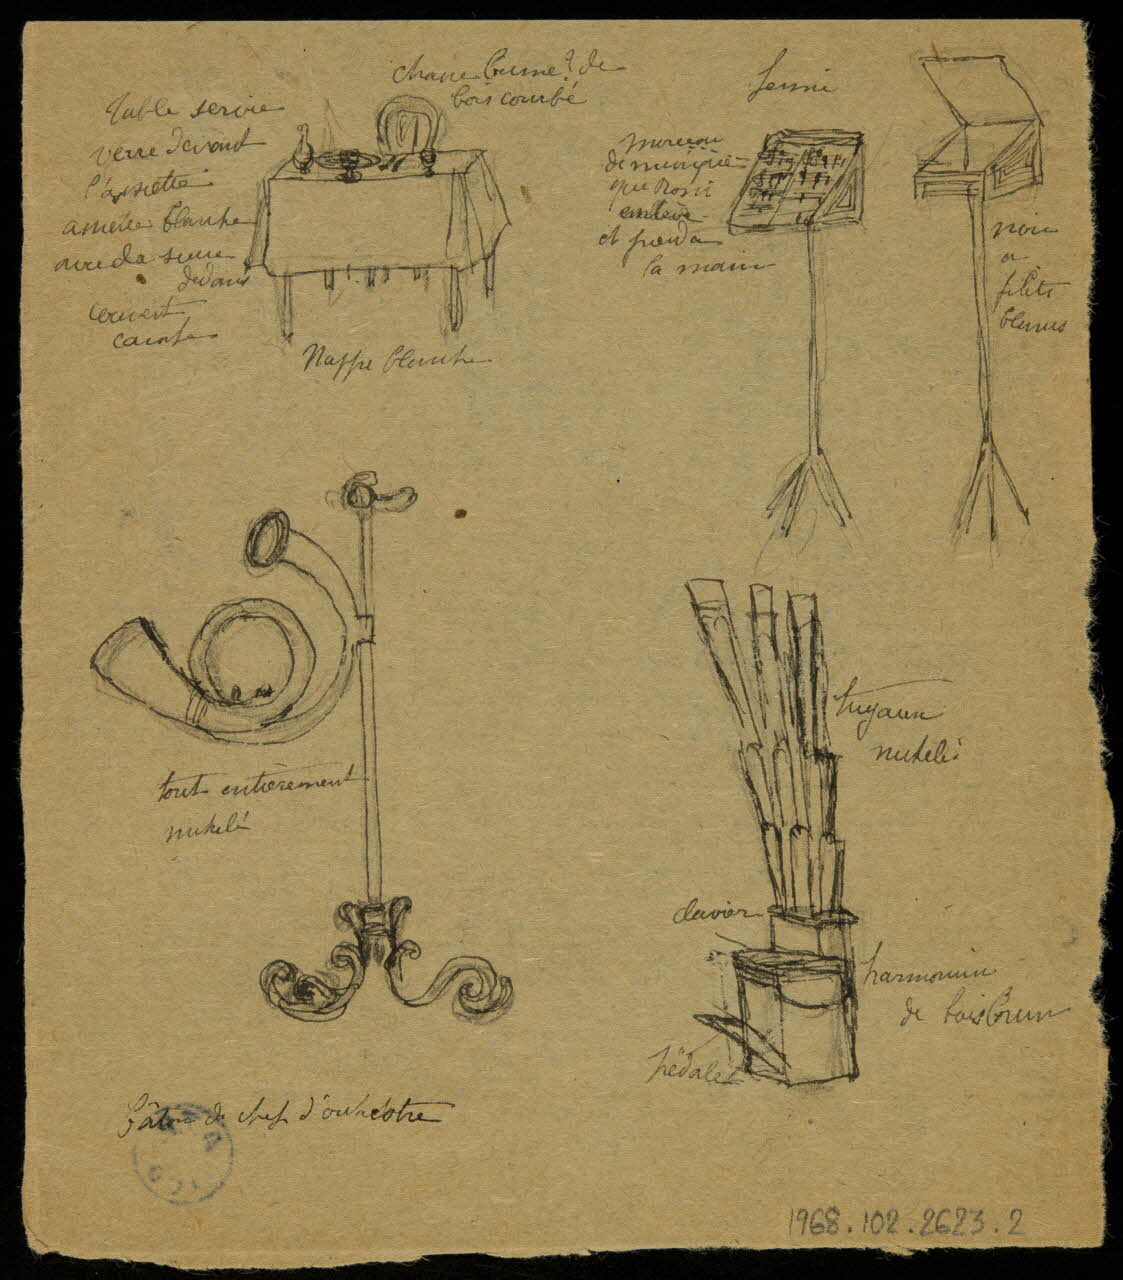 chaise brune de
bois courbé
Table servie
verre devant
l'assiette
assiette blanche
avec la
dedans
couvert
Nappe blanche
fermé
morceau
de musique
que Rosi
enlève
et prend à
la main
noir
à
filets
blancs
tout entièrement
nickelé
tuyaux
nickelés
clavier
harmonium
de bois brun
pédales
Bâton de chef d'orchestre
1968.102.2623.2